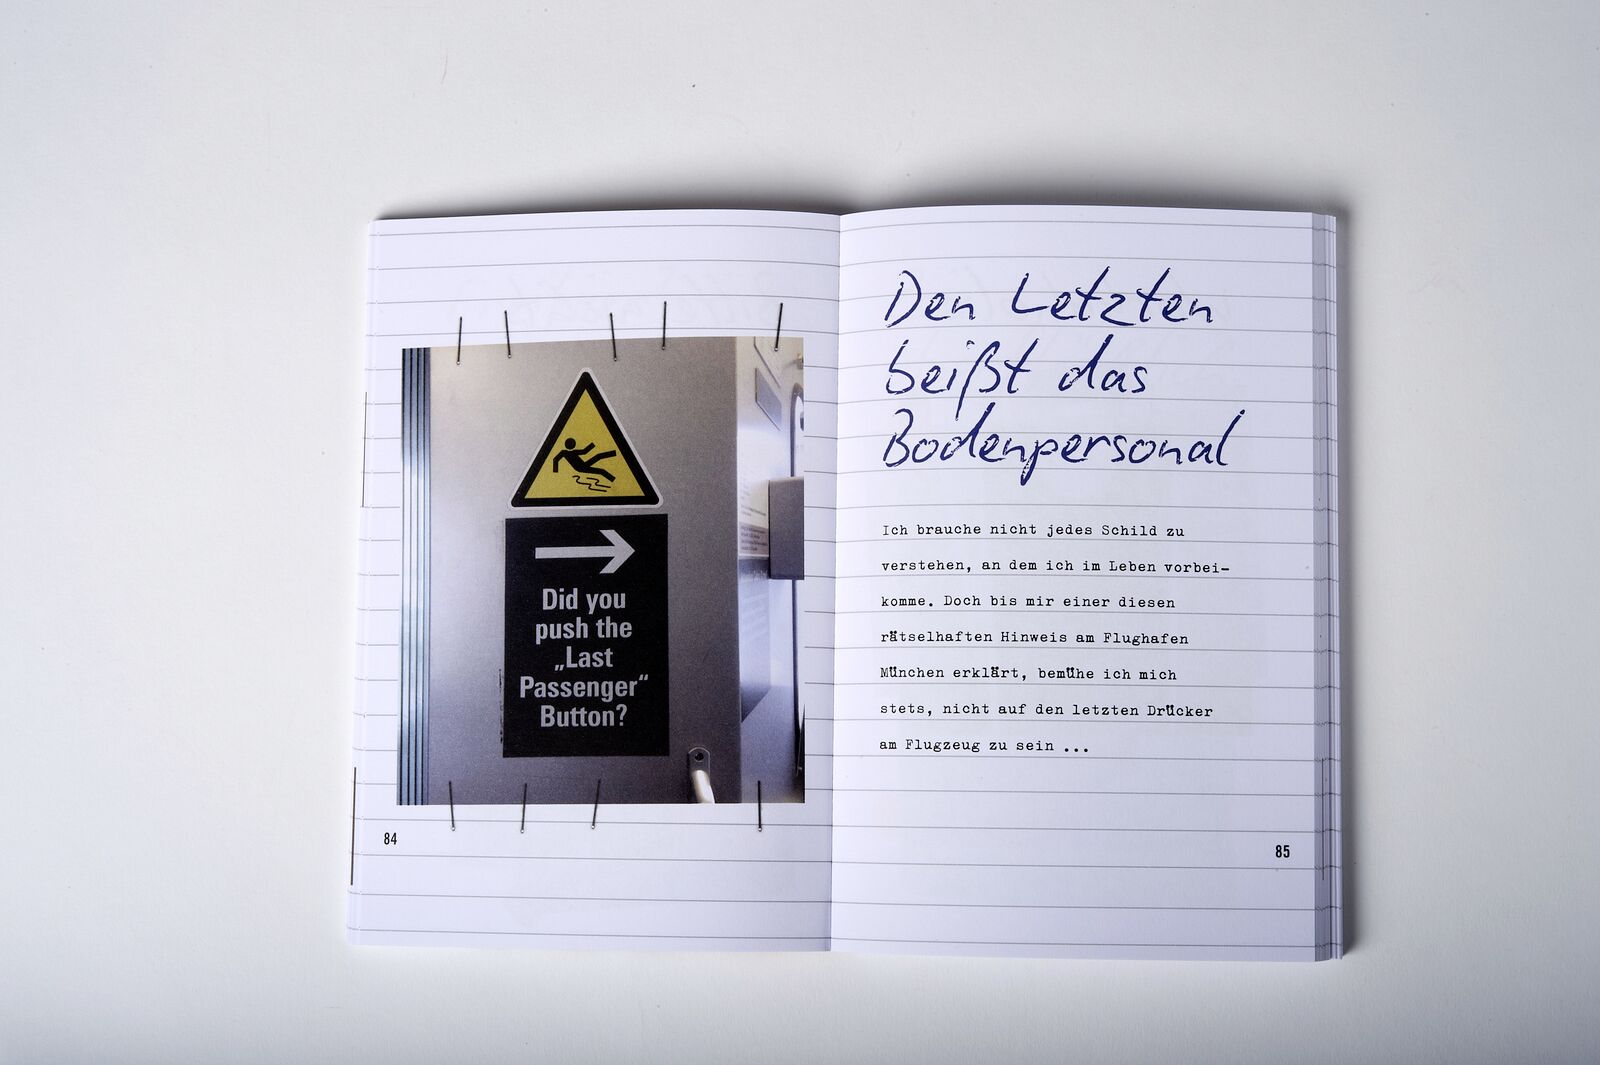 Did you
push the
„Last
Passenger“
Button?
84
Den Letzten
beißt das
Bodenpersonal
Ich brauche nicht jedes Schild zu
verstehen, an dem ich im Leben vorbei-
komme. Doch bis mir einer diesen
rätselhaften Hinweis am Flughafen
München erklärt, bemühe ich mich
stets, nicht auf den letzten Drücker
am Flugzeug zu sein ...
85